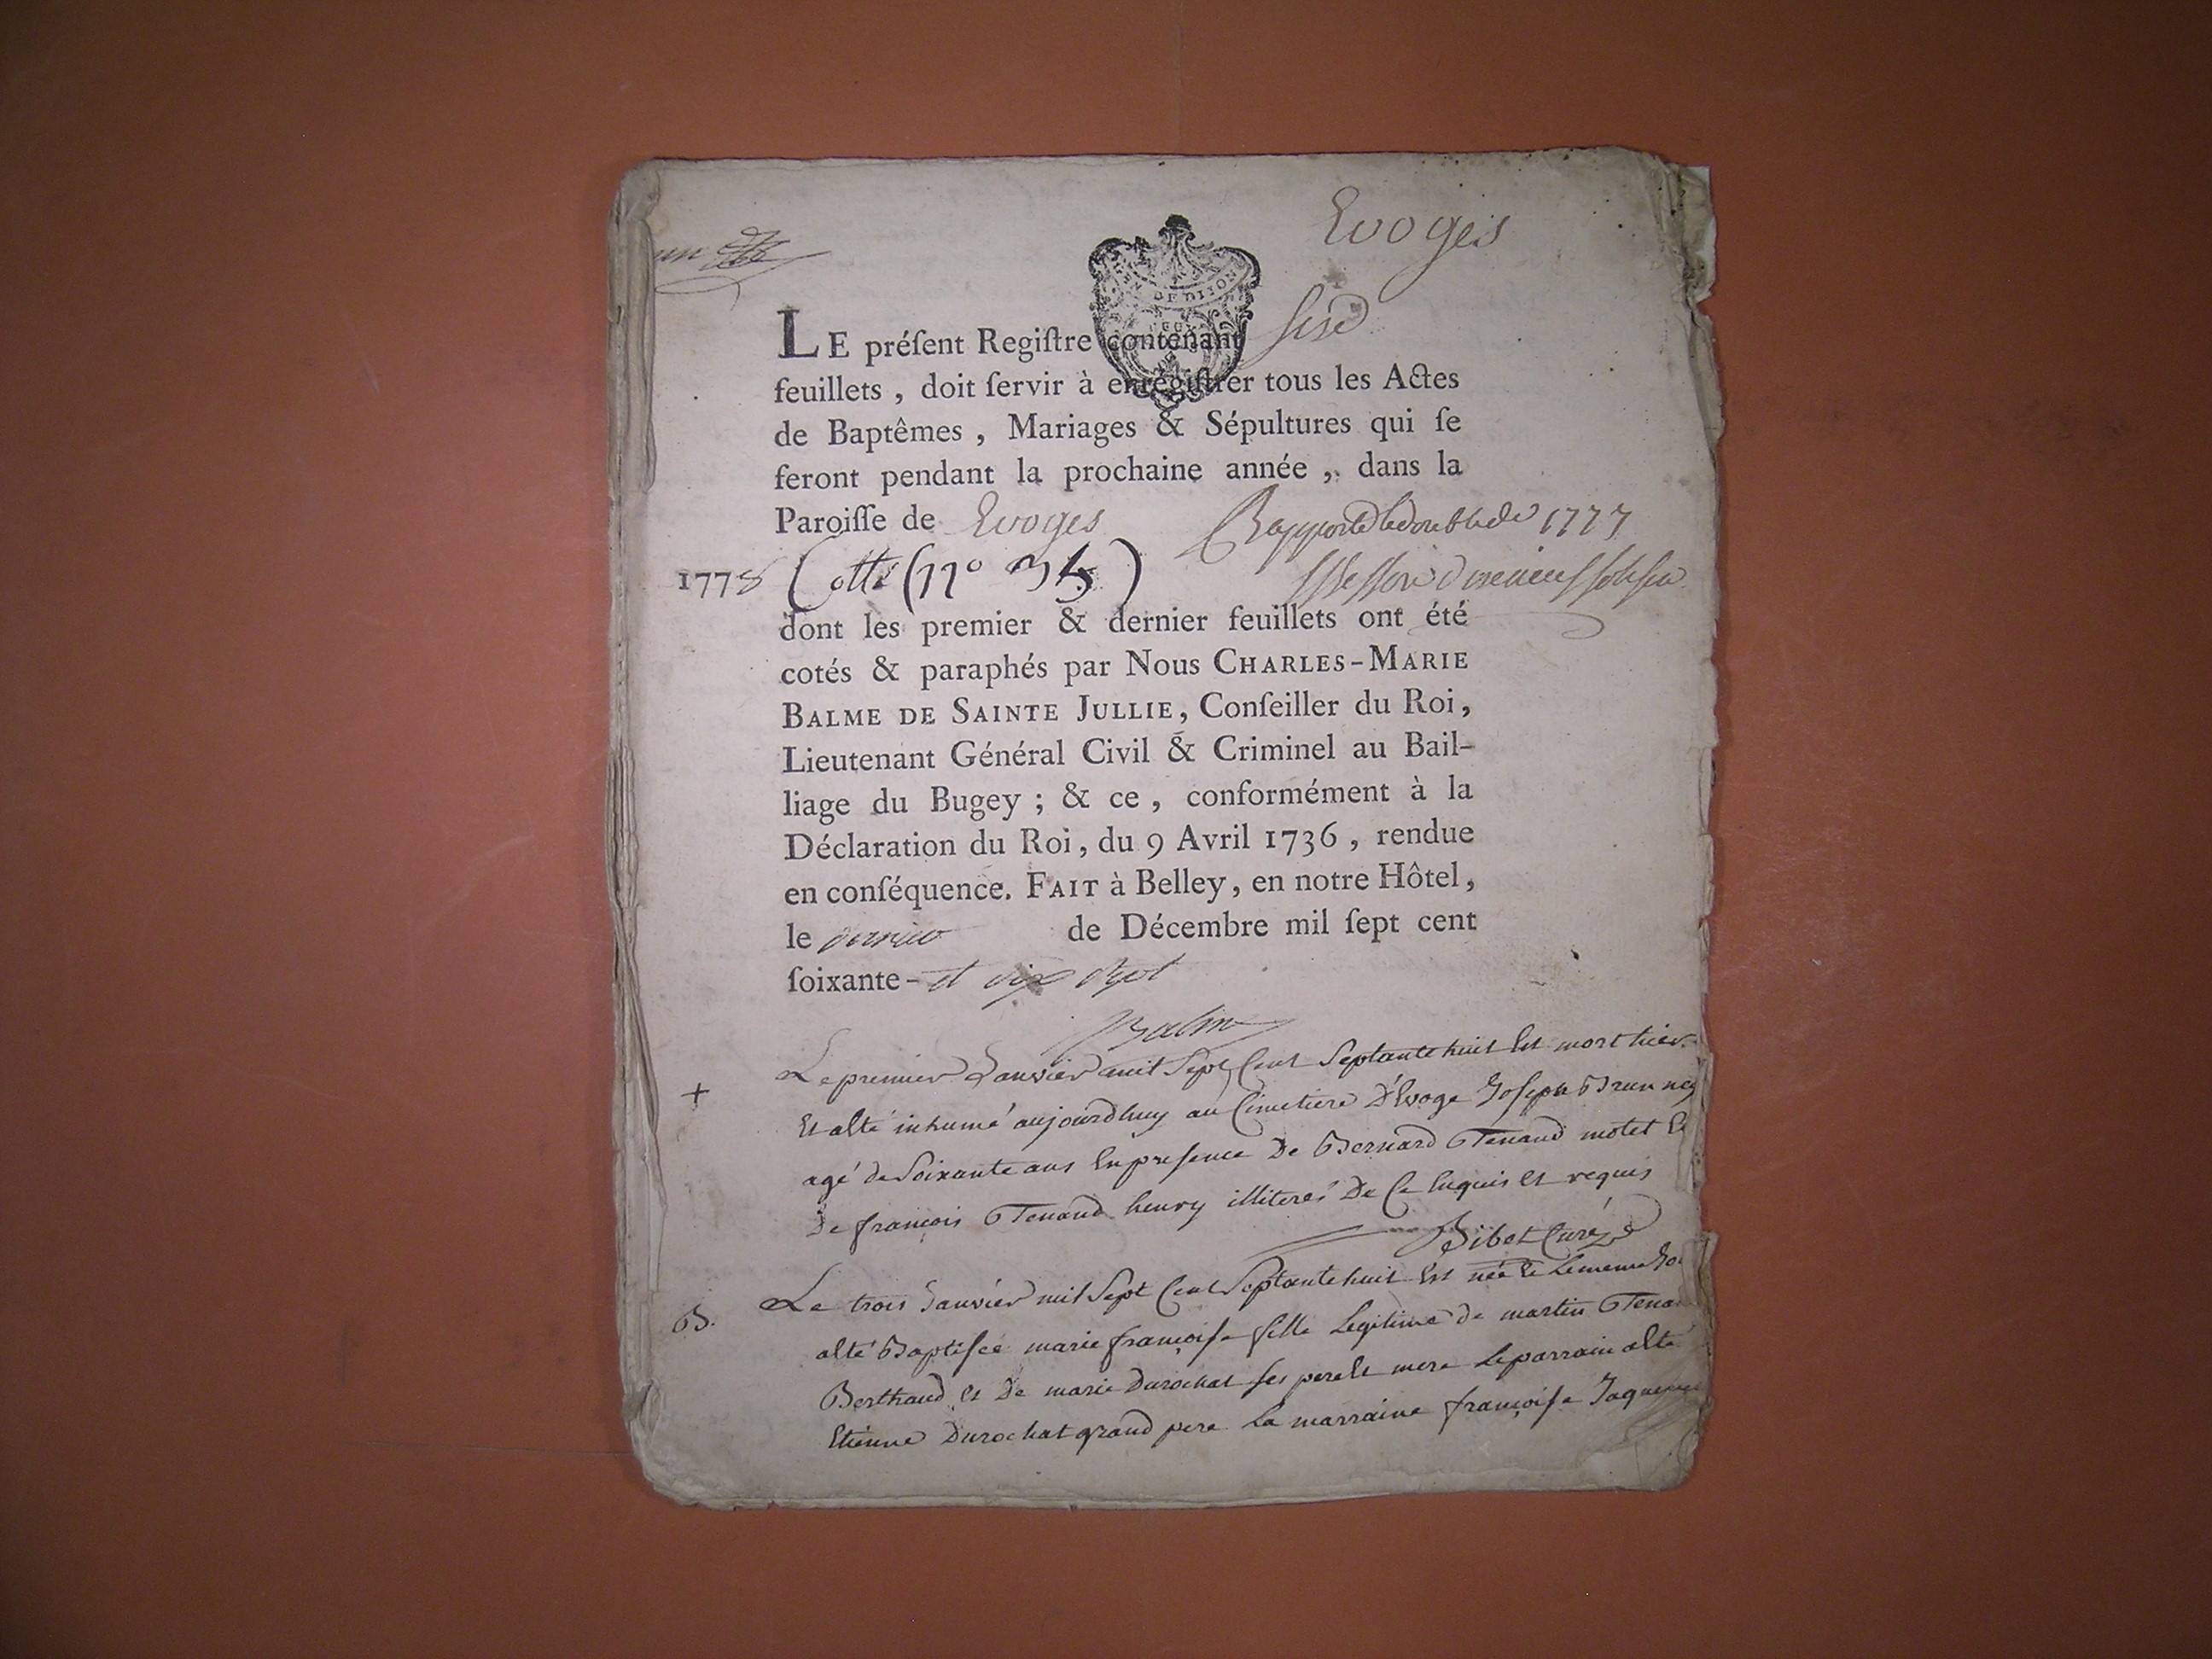 un
Evoges
GEN. DE DIJON
LE préſent Regiſtre contenant six
feuillets , doit ſervir à enrégiſtrer tous les Actes
de Baptêmes , Mariages & Sépultures qui ſe
feront pendant la prochaine année , dans la
Paroiſſe de Evoges
Rapporté le double de 1777
1778 Cotte (n° 35)
dont les premier & dernier feuillets ont été
cotés & paraphés par Nous CHARLES-MARIE
BALME DE SAINTE JULLIE, Conſeiller du Roi,
Lieutenant Général Civil & Criminel au Bail-
liage du Bugey ; & ce , conformément à la
Déclaration du Roi, du 9 Avril 1736 , rendue
en conſéquence. FAIT à Belley, en notre Hôtel,
le dernier de Décembre mil ſept cent
ſoixante- et dix sept
Balme
+ Le premier Janvier mil Sept Cent Septante huit Est mort hier
Et a été inhumé aujourdhuy au Cimetiere D'Evoge Joseph Brun
agé de Soixante ans En presence De Bernard Tenand motet Et
De françois Tenand henry illiterés De Ce Enquis et requis
Bibet Curé
B. Le trois Janvier mil Sept Cent Septante huit Est née Et Le meme
a été Baptisée marie françoise fille Legitime de martin Tenand
Berthaud et De marie Durochat ses pere Et mere Le parrain a été
Etienne Durochat grand pere La marraine françoise